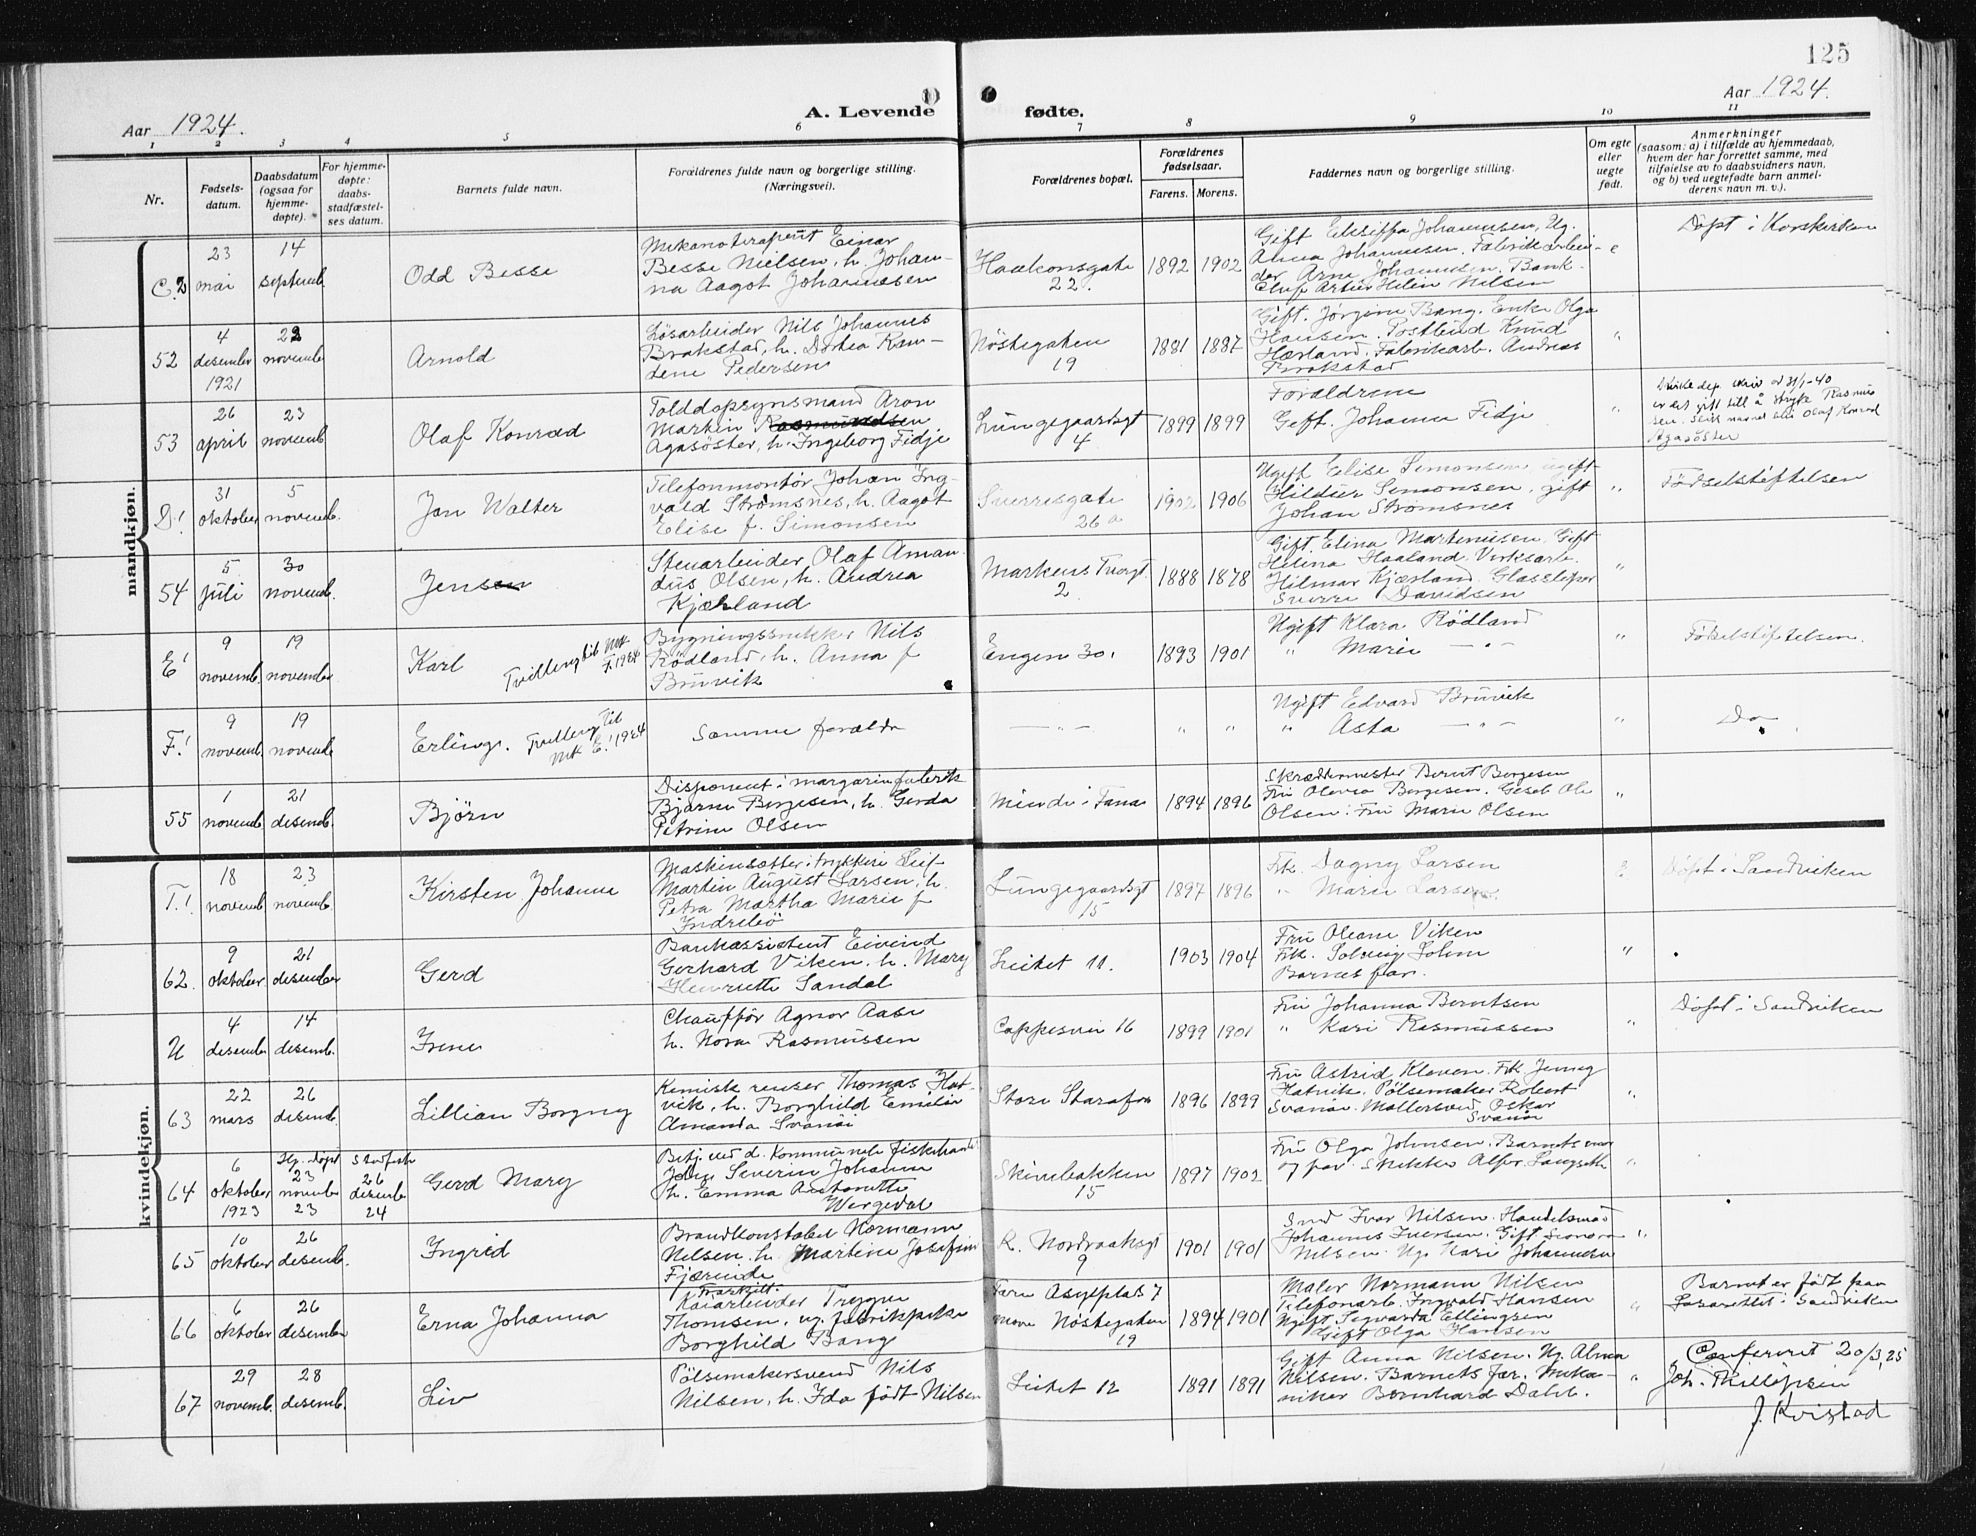 125
Aar 1924.
A. Levende
født​e.
Aar 1924.
1 2 3 4 5 6 7 8 9 10 11
Nr.
Fødsels-
datum.
Daabsdatum
(ogsaa for
hjemme-
døpte).
For hjemme-
døpte:
daabs-
stadfæstel-
ses datum.
Barnets fulde navn.
Forældrenes fulde navn og borgerlige stilling.
(Næringsvei).
Forældrenes bopæl.
Forældrenes
fødselsaar.
Farens. Morens.
Faddernes navn og borgerlige stilling.
Om egte
eller
uegte
født.
Anmerkninger
(saasom: a) i tilfælde av hjemmedaab,
hvem der har forrettet samme, med
tilføielse av to daabsvidners navn,
og b) ved uegtefødte barn anmel-
derens navn m. v.).
mandkjøn.
C.2
23
mai
14
septemb.
Odd Besse
Mekanoterapeut Einar
Besse Nielsen, h. Johan-
na Aagot Johannesen
Haakonsgate
22.
1892 1902
Gift Johannesen, Ug.
Anna Johannesen. Fabrikarbei-
der Arne Johannesen. Bank-
Nilsen
e
Døpt i Korskirken
52
4
desember
1921
22
novemb
Arnold
Løsarbeider Nils Johannes
Brakstad, h. Dortea Kam-
dene Pedersen
Nöstegaten
19
1881 1887
Gift. Jörgine Bang. Enke Olga
Hansen. Postbud Knud
Hærland. Fabrikarb. Andreas
Brakstad
"
53
26
april
23
novemb
Olaf Konrad
Tolddopsynsmand Aron
Martin Rasmundsen
Agasöster, h. Ingeborg Fidje
Lungegaardsgt
4
1899 1899
Foraldrene
Gift. Johanna Fidje
"
31/1-40
er det gitt till å stryke Rasmus
sen. Slik navnet blir Olaf Konrad
Agasöster
D!
31
oktober
5
novemb.
Jan Walter
Telefonmontör Johan Ing-
vald Strömsnes, h. Aagot
Elise f. Simonsen
Sverresgate
26a
1902 1906
Ugift Elise Simonsen ugift
Hildur Simonsen. gift
Johan Strömsnes
"
Fødselstiftelsen
54
5
juli
30
novemb.
Jensen
Stenarbeider Olaf Aman-
dus Olsen, h. Andrea
Kjærland
Markens Tvergt
2
1888 1878
Gift. Elina Martinusen. Gift
Helena Haaland. Verksarb.
Hilmar Kjærland. Glassliper
Sverre Davidsen
"
E!
9
novemb.
19
november
Karl
Tvilling til Mrk
F! 1924
Bygningssnekker Nils
Rödland, h. Anna f
Bruvik
Engen 30.
1893 1901
Ugift Klara Rödland
" Marie — " —
"
Fødselstiftelsen.
F.!
9
novemb.
19
novemb
Erling.
Tvilling til
Mrk E! 1924
Samme foræld​re
— " —
" "
Ugift Edvard Bruvik
" Asta — " —
"
Do
55
1
novemb.
21
desemb.
Björn
Disponent i margarinfabrik
Bjarne Börgesen, h. Gerda
Petrine Olsen
Minde i Fana
1894 1896
Skræddermester Bernt Börgesen
Fru Olevia Börgesen. Gesel Ole
Olsen. Fru Marie Olsen
"
kvindekjøn.
T.!
18
novemb
23
novemb.
Kirsten Johanne
Maskinsætter i trykkeri Leif
Martin August Larsen, h.
Petra Martha Marie f
Indrebö
Lungegaardsgt
15
1897 1896
Frk. Dagny Larsen
" Marie Larsen
e
Døpt i Sandviken
62.
9
oktober
21
desember
Gerd
Bankassistent Eivind
Gerhard Viken, h. Mary
Henriette Sandal
Leitet 11.
1903 1904
Fru Oleane Viken
Frk. Solveig Solem
Barnets far.
"
U
4
desemb
14
desemb.
Irene
Chauffør Agnar Aase
h. Nora Rasmussen
Cappesvei 16
1899 1901
Fru Johanna Berntsen
" Kari Rasmussen
"
Döpt i Sandviken
63
22
mars
26
desemb.
Lillian Borgny
Kemisk renser Thomas Hat-
vik, h. Borghild Emilie
Amanda Svanöi
Store
1896 1899
Fru Astrid Kleven. Frk Jenny
Hatvik. Pölsemaker Robert
Svanöi. Møllersvend Oskar
Svanöi
"
64
6
oktober
1923
Hj. döpt
23
november
23
Stadfæste
26
desemb
24
Gerd Mary
Betj. ved d. kommunale fiskehandel
Johan Severin Johanne
h. Emma Antonette
Wergedal
Skivebakken
15
1897 1902
Fru Olga Johnsen. Barnets mor
og far. Snekker Alfr. Langseth
"
65
10
oktober
26
desemb.
Ingrid
Brandkonstabel Normann
Nilsen, h. Martine Josefine
Fjæreide
R. Nordraaksgt
9
1901 1901
Smed Ivar Nilsen. Handelsmand
Johannes Iversen. Gift Leonora
Nilsen. Ug. Kari Johannesen
"
66
6
oktober
26
desember
Erna Johanna
Fraskilt.
Kaiarbeider Trygve
Thomsen, ug. fabrikpike
Borghild Bang
Faren Asylplads 7
moren Nöstegaten
19
1894 1901
Maler Normann Nilsen
Telefonarb. Ingvald Hansen
Ugift Segvarda Ellingsen
Gift Olga Hansen
"
Barnet er født paa
Lasarettet i Sandviken
67
29
novemb.
28
desemb.
Liv
Pölsemakersvend Nils
Nilsen, h. Ida født Nilsen
Leitet 12
1891 1891
Gift Anna Nilsen. Ug. Alma
Nilsen. Barnets far. Meka-
niker Bernhard Dahl.
"
Conferert 20/3, 25
Joh.
J. Kvistad